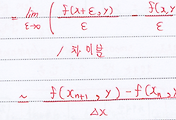 = lim ε→∞ ( f(x+ε, y) / ε - f(x, y / ε
/ 차이를
~ f(xₙ₊₁, y) - f(xₙ, / Δx